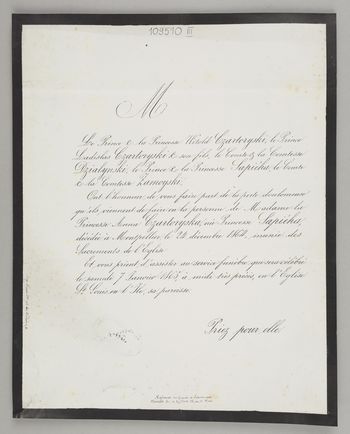 109510 III
M
Le Prince & la Princesse Witold Czartoryski, le Prince
Ladislas Czartoryski & son fils, le Comte & la Comtesse
Dzialynski, le Prince & la Princesse Sapieha, le Comte
& la Comtesse Zamoyski,
Ont l'honneur de vous faire part de la perte douloureuse
qu'ils viennent de faire en la personne de Madame la
Princesse Anna Czartoryska, née Princesse Sapieha,
décédée à Montpellier, le 24 décembre 1864, munie des
Sacrements de l'Église.
Et vous prient d'assister au service funèbre qui sera célébré
le samedi 7 Janvier 1865, à midi très précis, en l'Église
St Louis en l'Île, sa paroisse.
Priez pour elle.